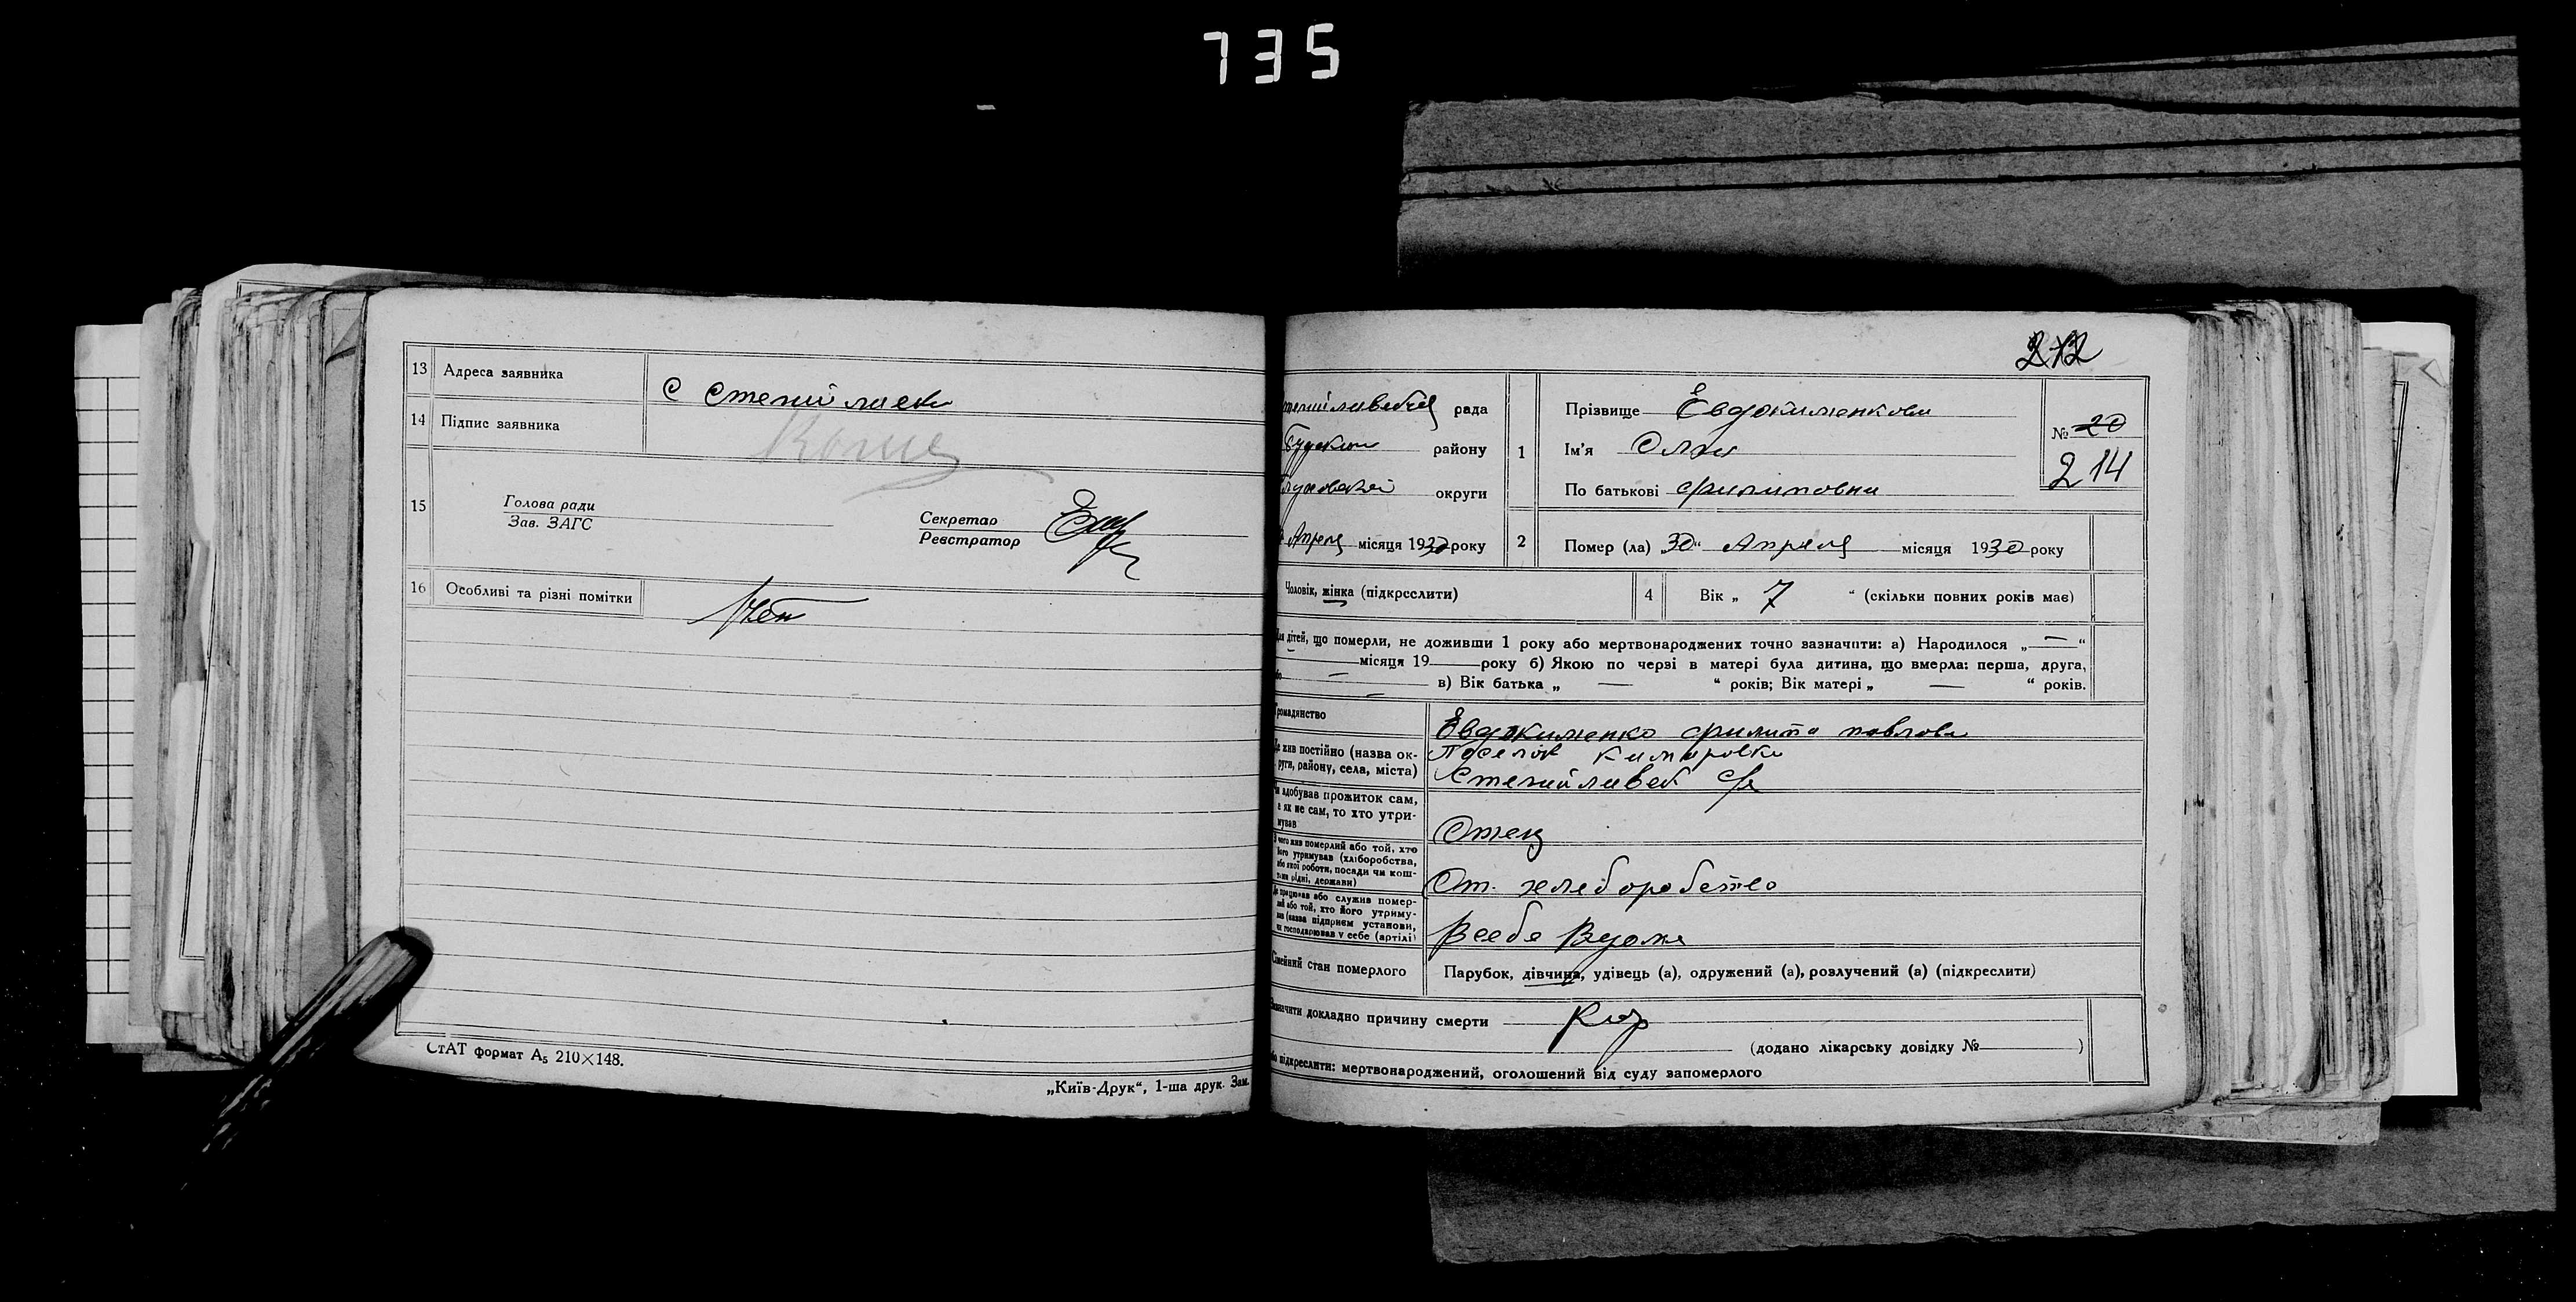 735
13 Адреса заявника С
14 Підпис заявника
15 Голова ради
Зав. ЗАГС
Секретар
Реєстратор
16 Особливі та різні помітки
СтАТ формат А₅ 210×148.
„Київ-Друк“, 1-ша друк. Зам.
212
рада
району
округи
Апреля місяця 1930 року
1 Прізвище Евдокименкова
Ім'я
По батькові Филиповна
№ 20
214
2 Помер (ла) „30“ Апреля місяця 1930 року
Чоловік, жінка (підкреслити)
4 Вік „ 7 “ (скільки повних років має)
Для дітей, що померли, не доживши 1 року або мертвонароджених точно зазначити: а) Народилося „—“
місяця 19 — року б) Якою по черзі в матері була дитина, що вмерла: перша, друга,
або — в) Вік батька „ — “ років; Вік матері „ — “ років.
Громадянство Евдокименко Филипа Павлова
Де жив постійно (назва ок-
руги, району, села, міста)
Поселок
с/р
Чи здобував прожиток сам,
а як не сам, то хто утри-
мував
Отец
З чого жив померлий або той, хто
його утримував (хліборобства,
або якої роботи, посади чи кош-
тами рідні, держави)
От. хлеборобство
Де працював або служив помер-
лий або той, хто його утриму-
вав (назва підприєм. установи,
чи господарював у себе (артілі)
В себе Вдома
Сімейний стан померлого Парубок, дівчина, удівець (а), одружений (а), розлучений (а) (підкреслити)
Зазначити докладно причину смерти Кор
(додано лікарську довідку № )
або підкреслити: мертвонароджений, оголошений від суду за померлого